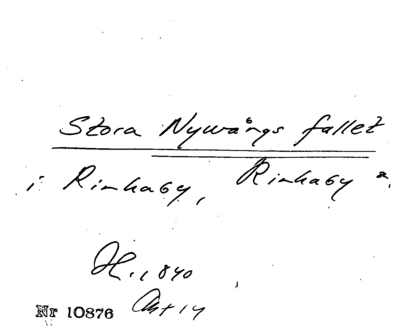 Stora Nywångs fallet
i Rinkaby, Rinkaby
H. 1840
Nr 10876